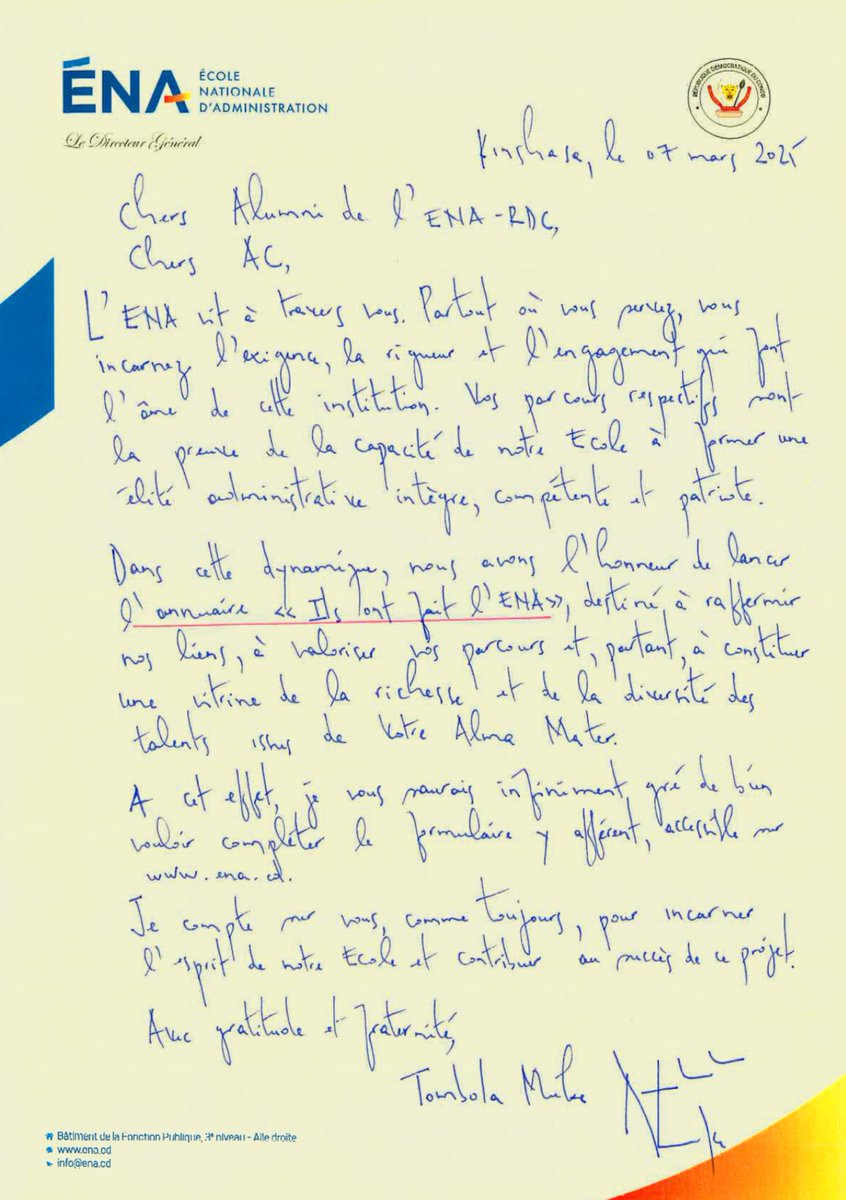 ÉNA
ÉCOLE
NATIONALE
D'ADMINISTRATION
Le Directeur Général
RÉPUBLIQUE DÉMOCRATIQUE DU CONGO
Kinshasa, le 07 mars 2025
Chers Alumni de l'ENA-RDC,
Chers AC,
L'ENA vit à travers vous. Partout où vous servez, vous
incarnez l'exigence, la rigueur et l'engagement qui font
l'âme de cette institution. Vos parcours respectifs sont
la preuve de la capacité de notre Ecole à former une
élité administrative intègre, compétente et patriote.
Dans cette dynamique, nous avons l'honneur de lancer
l'annuaire « Ils ont fait l'ENA», destiné à raffermir
nos liens, à valoriser vos parcours et, partant, à constituer
une vitrine de la richesse et de la diversité des
talents issus de Votre Alma Mater.
A cet effet, je vous saurais infiniment gré de bien
vouloir compléter le formulaire y afférent, accessible sur
www.ena.cd.
Je compte sur vous, comme toujours, pour incarner
l'esprit de notre Ecole et contribuer au succès de ce projet.
Avec gratitude et fraternité,
Tombola Muke
Bâtiment de la Fonction Publique, 3e niveau - Aile droite
www.ena.cd
info@ena.cd